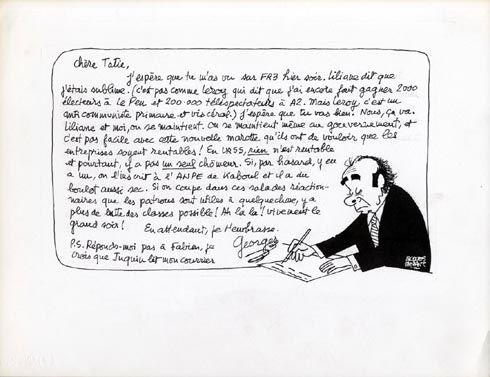 Chère Tatie,
J'espère que tu m'as vu sur FR3 hier soir. Liliane dit que
j'étais sublime. (c'est pas comme Leroy qui dit que j'ai encore fait gagner 2000
électeurs à Le Pen et 200 000 téléspectateurs à A2. Mais Leroy, c'est un
anti communiste primaire et viscéral.) J'espère que tu vas bien. Nous, ça va.
Liliane et moi, on se maintient. On se maintient même au gouvernement, et
c'est pas facile avec cette nouvelle marotte qu'ils ont de vouloir que les
entreprises soyent rentables! En URSS, rien n'est rentable
et pourtant, y a pas un seul chômeur. Si, par hasard, y en
a un, on l'inscrit à l'ANPE de Kaboul et il a du
boulot aussi sec. Si on coupe dans ces salades réaction-
naires que les patrons sont utiles à quelquechose, y a
plus de lutte des classes possible! Ah la la! vivement le
grand soir!
En attendant, je t'embrasse.
Georges
P.S. Réponds-moi pas à Fabien, je
crois que Juquin lit mon courrier